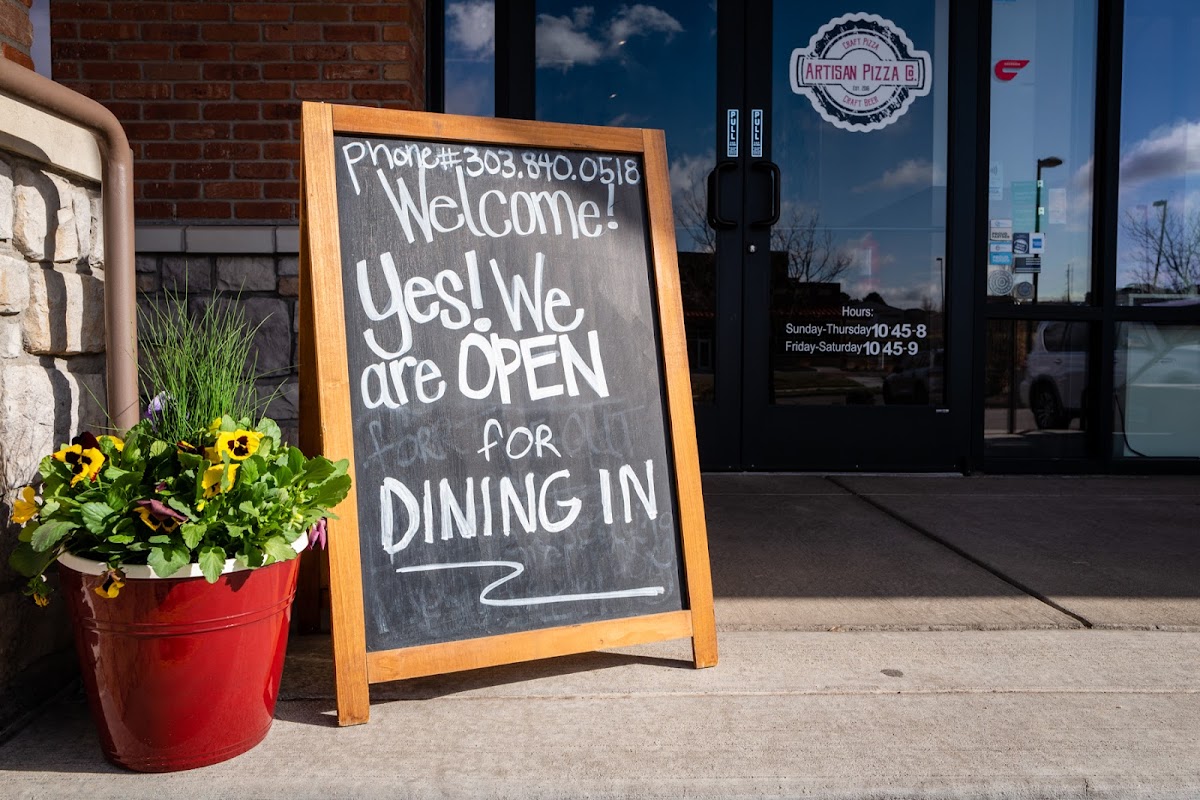 Phone#:303.840.0518
Welcome!
Yes! We
are OPEN
for
DINING IN
CRAFT PIZZA
ARTISAN PIZZA CO.
CRAFT BEER
PULL
PULL
Hours:
Sunday-Thursday 10:45-8
Friday-Saturday 10:45-9